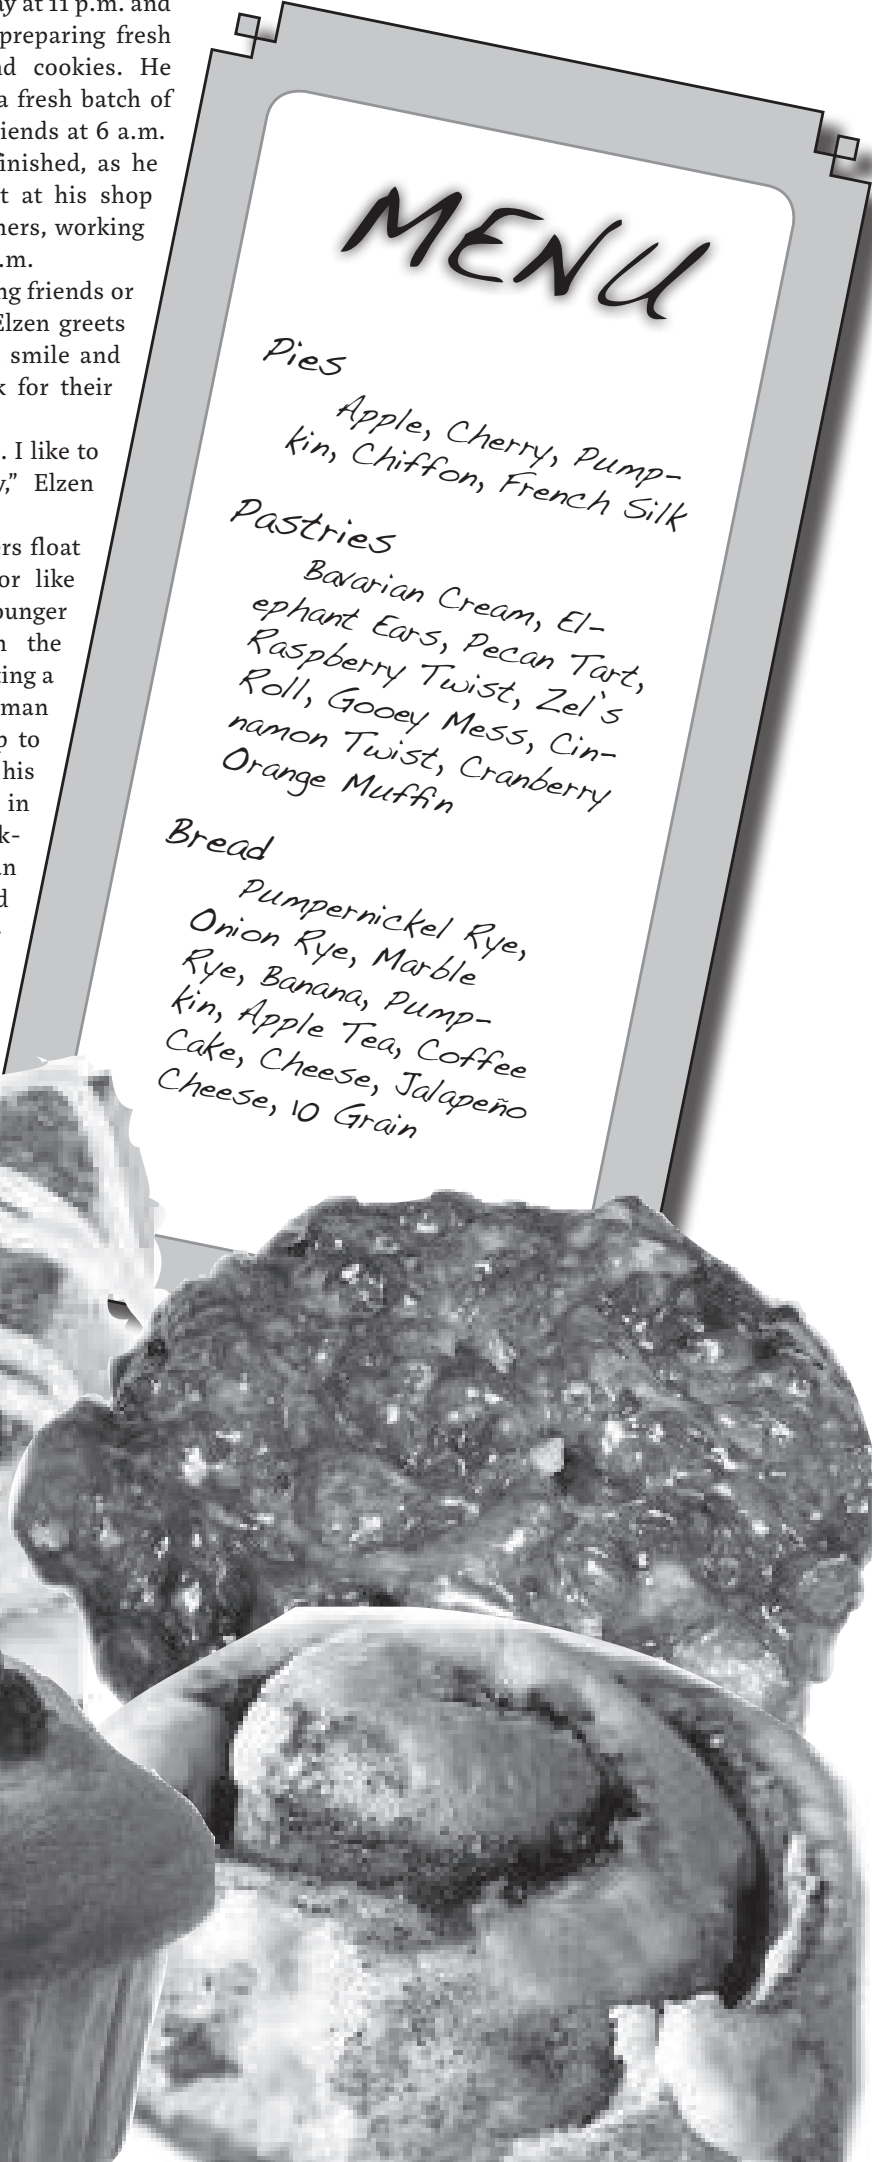 ay at 11 p.m. and
preparing fresh
nd cookies. He
a fresh batch of
iends at 6 a.m.
finished, as he
t at his shop
ners, working
.m.
ng friends or
Elzen greets
smile and
k for their
. I like to
y,” Elzen
ers float
or like
ounger
n the
ting a
man
p to
his
in
k-
an
d
MENU
Pies
Apple, Cherry, Pump-
kin, Chiffon, French Silk
Pastries
Bavarian Cream, El-
ephant Ears, Pecan Tart,
Raspberry Twist, Zel's
Roll, Gooey Mess, Cin-
namon Twist, Cranberry
Orange Muffin
Bread
Pumpernickel Rye,
Onion Rye, Marble
Rye, Banana, Pump-
kin, Apple Tea, Coffee
Cake, Cheese, Jalapeño
Cheese, 10 Grain